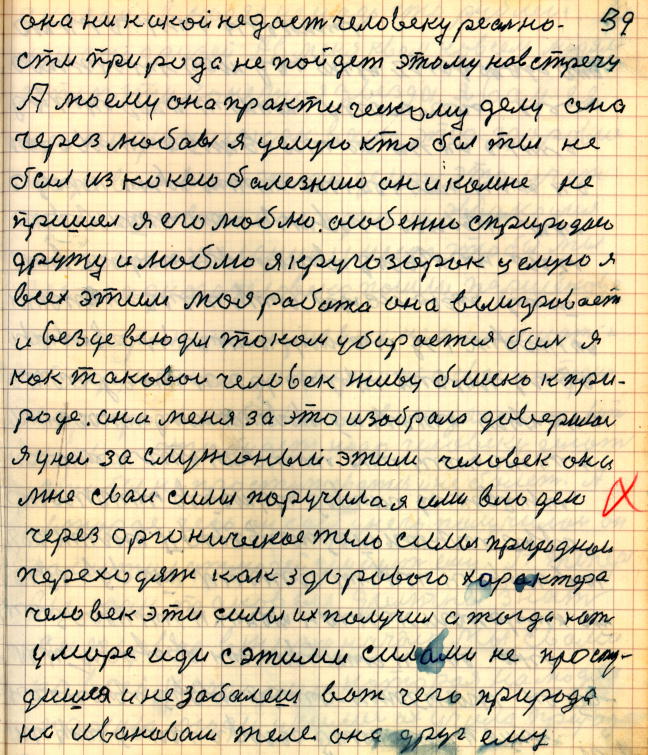 она ни какой не даст человеку реально- 39
сти природа не пойдет этому навстречу
А моему она практическому делу она
через любавь я целую кто бал ты не
бал из какею балезнию он и комне не
пришел я его люблю. особенно с природаю
дружу и люблю я кругозорок целую я
всех этим моя работа она выигровает
и везде всюды током убирается бал я
как таковои человек живу блиско к при-
роде. она меня за это избрало доверилас
я у неи заслужоныи этим человек она
мне сваи силы поручила я ими владею
через органическое тело силы природнои
переходят как здорового характера
человек эти силы их получил а тогда хот
у море иди с этими силами не прасту-
дишся и не забалееш вот чего природа
на Ивановам теле она друг ему